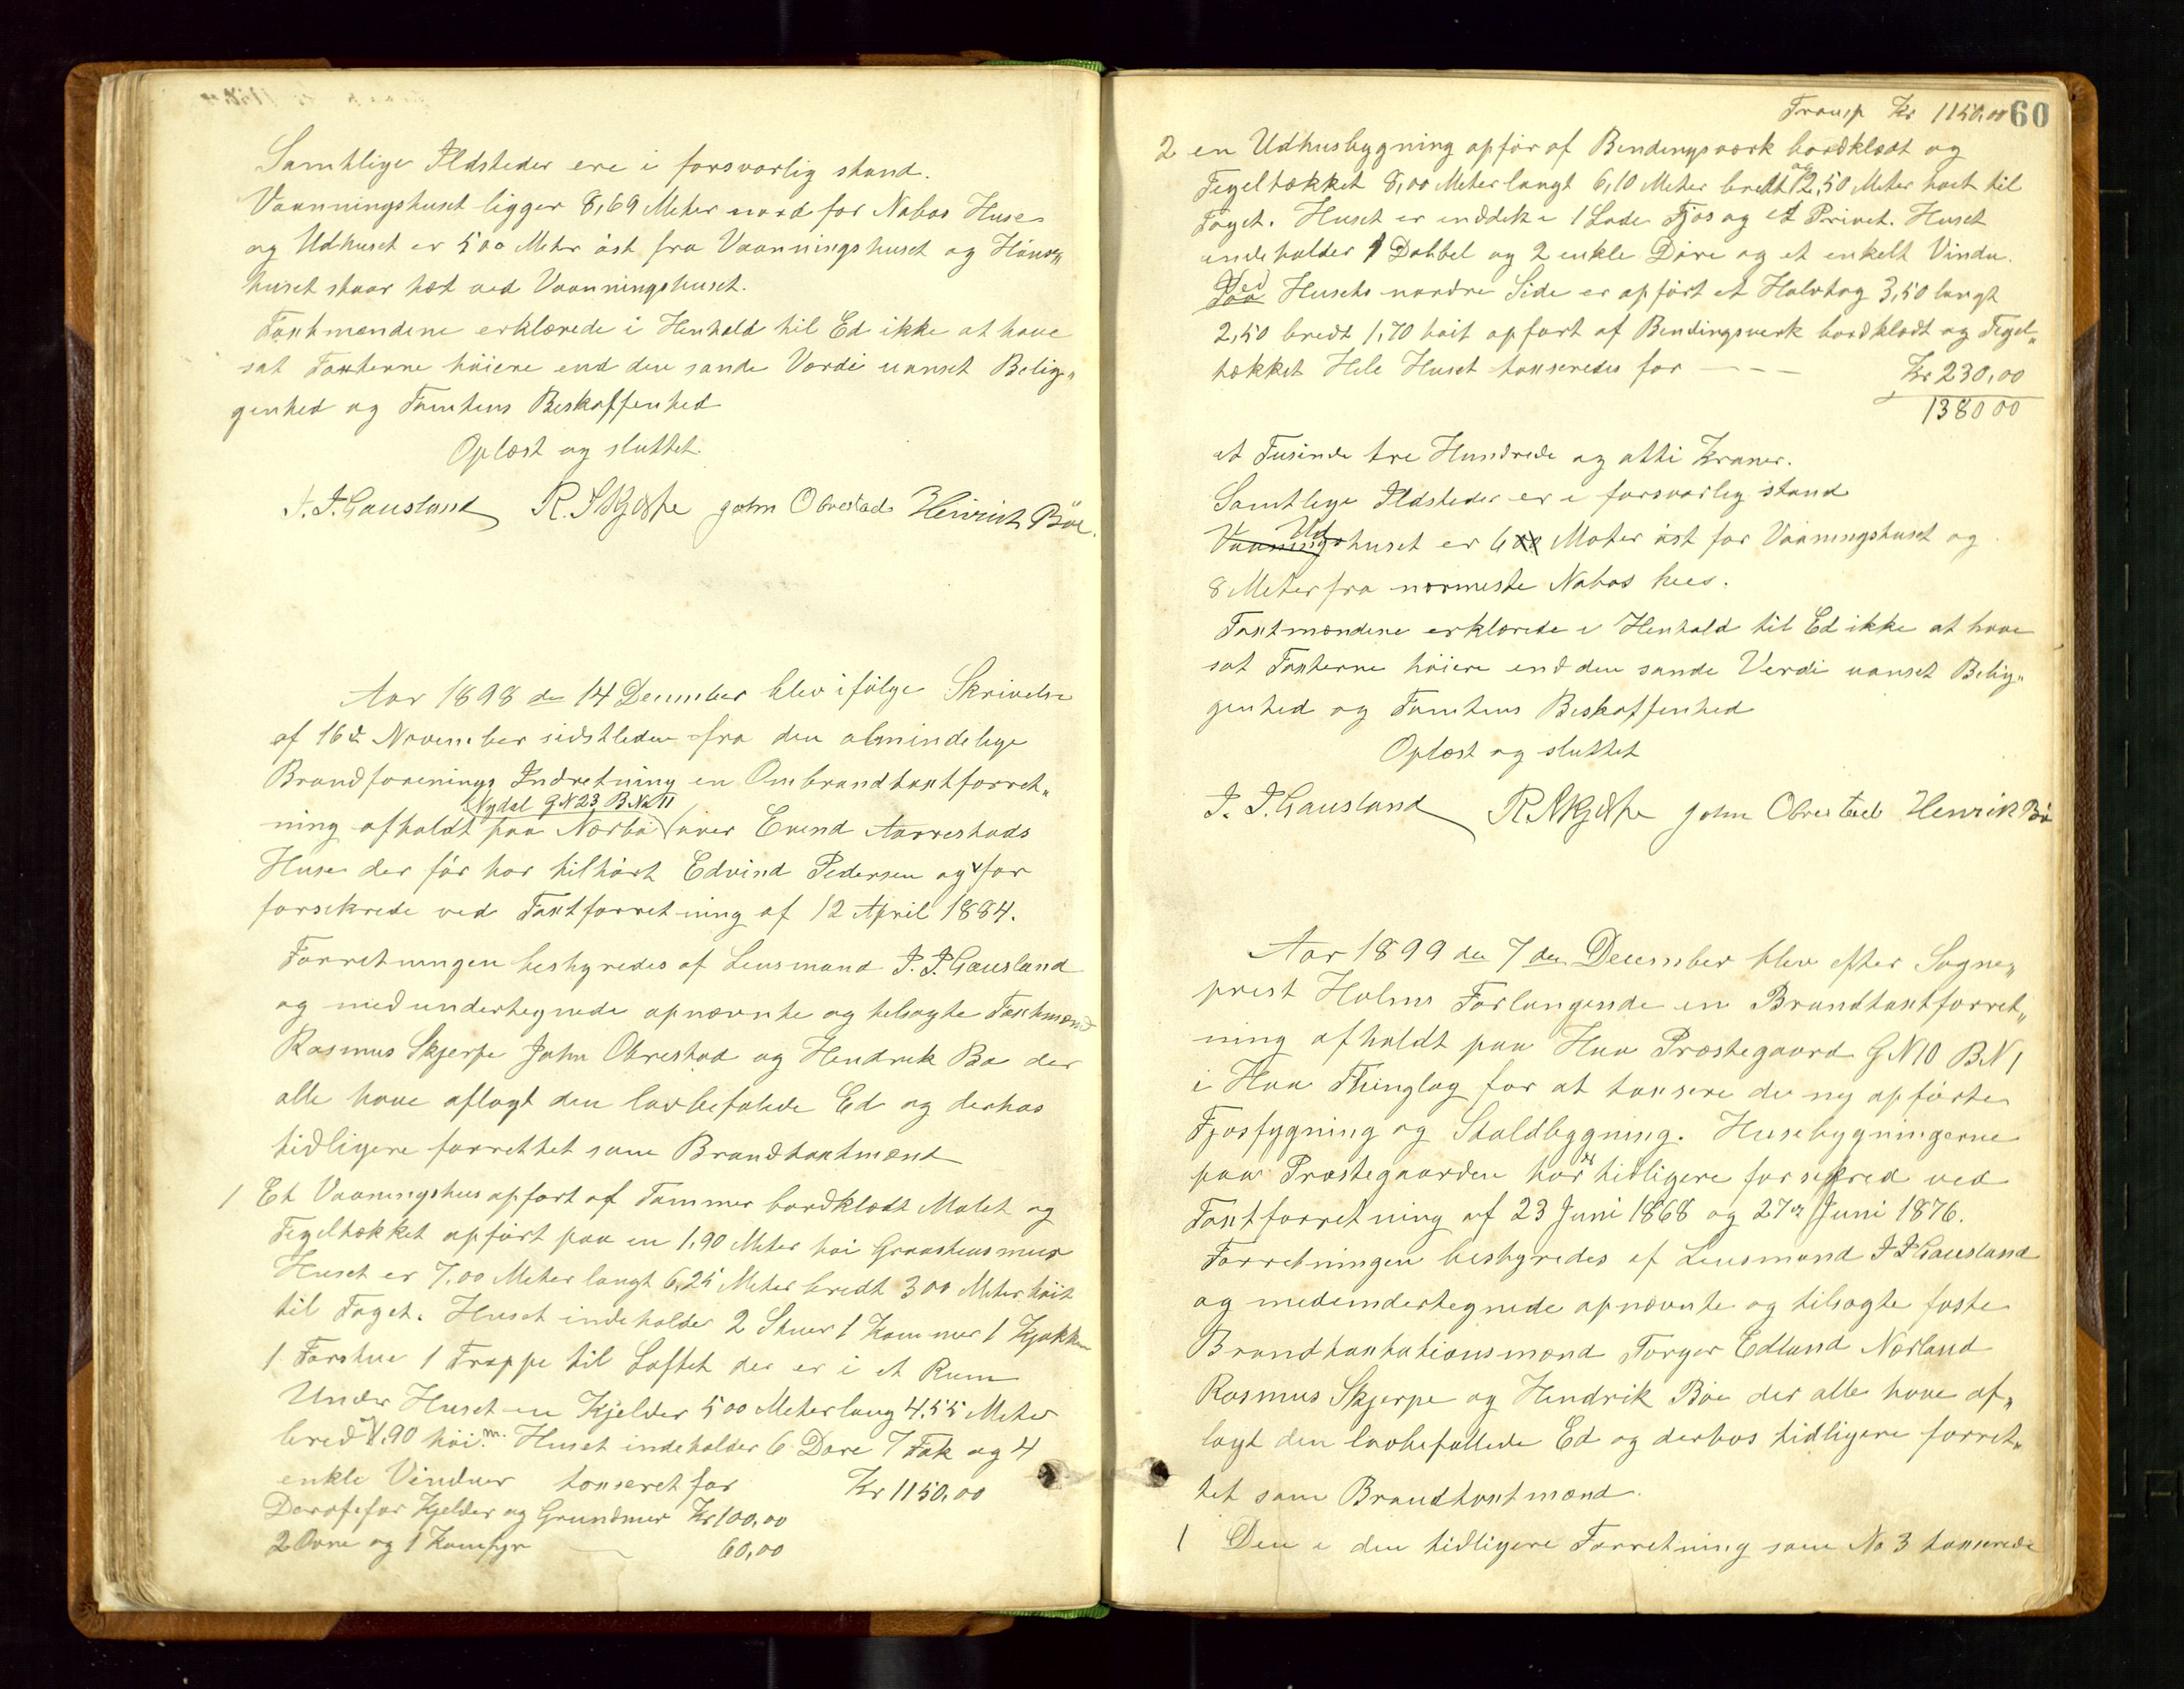 Samtlige Ildsteder ere i forsvarlig stand.
Vaaningshuset ligger 8,69 Meter nord for Nabos Huse
og Udhuset er 500 Meter øst fra Vaaningshuset og Höns„
huset staar tæt ved Vaaningshuset.
Taxtmændene erklærede i Henhold til Ed ikke at have
sat Taxterne höiere end den sande Værdi uanset Belig„
genhed og Tomtens Beskaffenhed
Oplæst og sluttet.
J. J. Gausland R. Skjerpe John Obrestad Heinrich Böe.
Aar 1898 den 14 December blev ifölge Skrivelse
af 16de November sidstleden fra den almindelige
Brandforsenings Indretning en Ombrandtaxtforret„
Nydal GN 23 B.No 11
ning afholdt paa Nærbö over Evend Aarrestads
Huse der för har tilhört Edvind Pedersen og for
forsikrede ved Taxtforretning af 12 April 1884.
Forretningen bestyredes af Lensmand J. J. Gausland
og medundertegnede opnævnte og tilsagte Taxtmænd
Rasmus Skjerpe John Obrestad og Hendrik Bø der
alle have aflagt den lovbefalede Ed og derhos
tidligere forrettet som Brandtaxtmænd
1 Et Vaaningshus opfört af Tømmer bordklædt Malet og
Tegeltækket opfört paa en 1,90 Meter höi Graastensmur
Huset er 7,00 Meter langt 6,25 Meter bredt 300 Meter höit
til Taget. Huset indeholder 2 Stuer 1 Kammer 1 Kjøkken
1 Forstue 1 Trappe til Loftet der er i et Rum
Under Huset en Kjelder 500 Meter lang 4,55 Meter
bred og 1,90 höi m. Huset indeholder 6 Døre 7 Fak og 4
enkle Vinduer taxseret for Kr 1150,00
Deraf for Kjelder og Grundmur Kr 100,00
2 Ovne og 1 Komfyr 60,00
Transp Kr 1150,00 60
2 en Udhusbygning opför af Bindingsværk bordklædt og
Tegeltækket 8,00 Meter langt 6,10 Meter bredt og 2,50 Meter høit til
Taget. Huset er inddelt i 1 Lade Fjøs og et Privet. Huset
indeholder 1 Dobbel og 2 enkle Döre og et enkelt Vindu.
Ved
Paa Husets nordre Side er opfört et Halvtag 3,50 langt
2,50 bredt 1,70 höit opfört af Bindingsverk bordklædt og Tegel„
tækket Hele Huset taxseredes for - - - Kr 230,00
1380 00
et Tusinde tre Hundrede og otti Kroner.
Samtlige Ildsteder er i forsvarlig stand
Ud
Vaaningshuset er 6 Meter öst for Vaaningshuset og
8 Meter fra nærmeste Nabos hus.
Taxtmændene erklærede i Henhold til Ed ikke at have
sat Taxterne höiere end den sande Verdi uanset Belig„
genhed og Tomtens Beskaffenhed
Oplæst og sluttet
J. J. Gausland R Skjerpe John Obrestad Henrik Bö
Aar 1899 den 7 den December blev efter Sogne„
prest Holms Forlangende en Brandtaxtforret„
ning afholdt paa Haa Præstegaard GN 10 B.N 1
i Haa Thinglag for at taxsere de ny opförte
Fjøsfygning og Staldbygning. Husebygningerne
paa Præstegaarden har tidligere forsikred ved
Taxtforretning af 23 Juni 1868 og 27de Juni 1876.
Forretningen bestyredes af Lensmand J J Gausland
og medundertegnede opnævnte og tilsagte faste
Brandtaxtationsmænd Torger Edland Nærland
Rasmus Skjerpe og Hendrik Böe der alle have af„
lagt den lovbefallede Ed og derhos tidligere forret„
tet som Brandtaxtmænd.
1 Den i den tidligere Forretning som No 3 taxserede